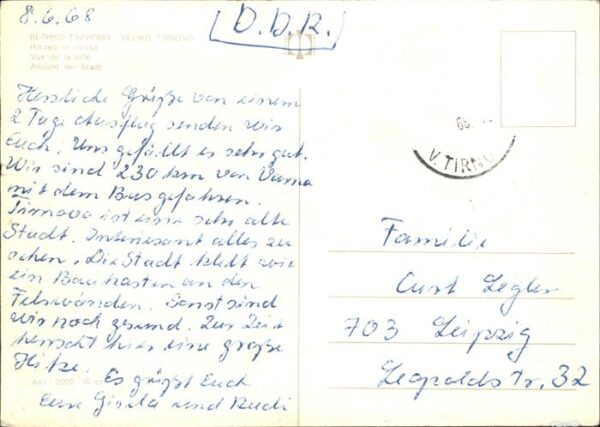 8.6.68
[D.D.R.]
ВЕЛИКО ТЪРНОВО - VELIKO TIRNOVO
Изглед
Vue de la ville
Ansicht der Stadt
Herzliche Grüße von einem
2 Tage Ausflug senden wir
Euch. Uns gefällt es sehr gut.
Wir sind 230 km von Varna
mit dem Bus gefahren.
Tirnovo ist eine sehr alte
Stadt. Interessant alles zu
sehen. Die Stadt klebt wie
ein Baukasten an den
Felswänden. Sonst sind
wir noch gesund. Zur Zeit
herrscht hier eine große
Hitze.
Es grüßt Euch
Eure Gisela und Rudi
68
V. TIRN
Familie
Curt Legler
703 Leipzig
Leopoldstr. 32